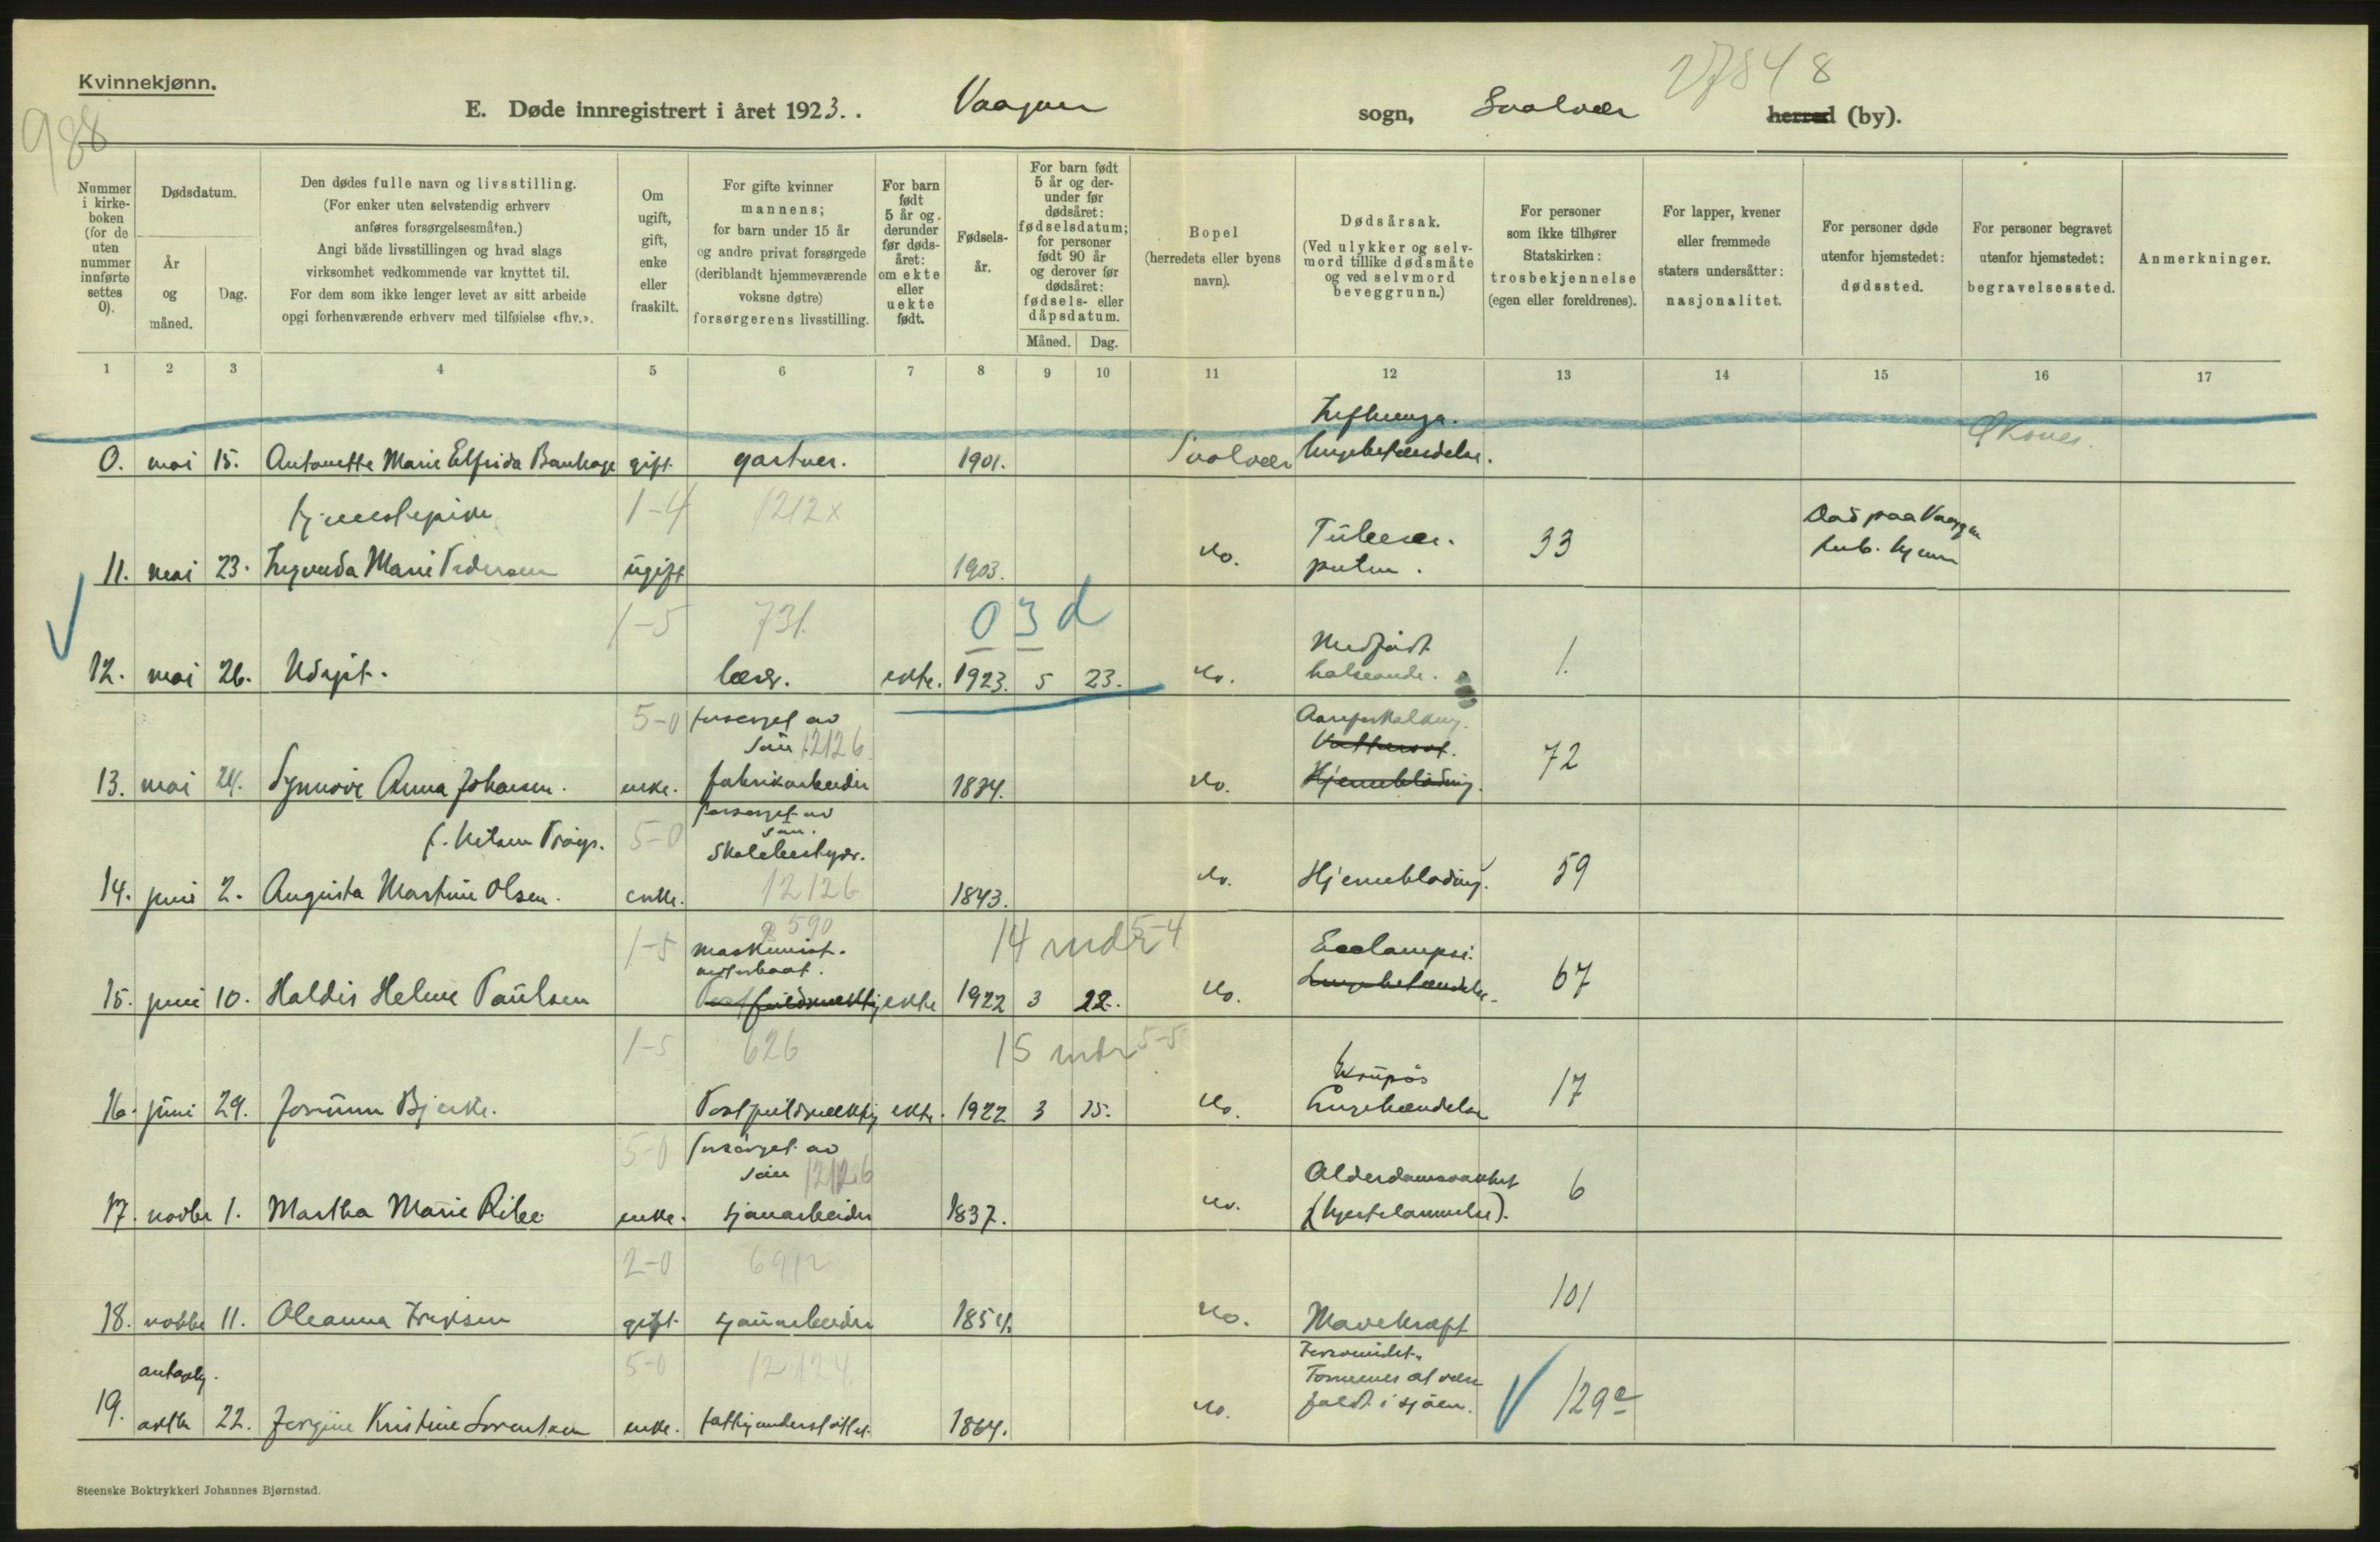 Kvinnekjønn.
27848
988
E. Døde innregistrert i året 1923. . Vaagan sogn, Svolvær herred (by).
Nummer i kirke-boken (for de uten nummer innførte settes 0).
Dødsdatum.
År og måned.
Dag.
Den dødes fulle navn og livsstilling.
(For enker uten selvstendig erhverv anføres forsørgelsesmåten.)
Angi både livsstillingen og hvad slags virksomhet vedkommende var knyttet til.
For dem som ikke lenger levet av sitt arbeide opgi forhenværende erhverv med tilføielse «fhv.».
Om ugift, gift, enke eller fraskilt.
For gifte kvinner mannens; for barn under 15 år og andre privat forsørgede (deriblandt hjemmeværende voksne døtre) forsørgerens livsstilling.
For barn født 5 år og derunder før døds-året: om ekte eller uekte født.
Fødsels-år.
For barn født 5 år og der-under før dødsåret: fødselsdatum; for personer født 90 år og derover før dødsåret: fødsels- eller dåpsdatum.
Måned. Dag.
Bopel (herredets eller byens navn).
Dødsårsak.
(Ved ulykker og selv-mord tillike dødsmåte og ved selvmord beveggrunn.)
For personer som ikke tilhører Statskirken: trosbekjennelse (egen eller foreldrenes).
For lapper, kvener eller fremmede staters undersåtter: nasjonalitet.
For personer døde utenfor hjemstedet: dødssted.
For personer begravet utenfor hjemstedet: begravelsessted.
Anmerkninger.
1 2 3 4 5 6 7 8 9 10 11 12 13 14 15 16 17
Influenza.
0. mai 15. Antonette Marie Elfrida gift. gartner. 1901. Svolvær lungebetændelse.
tjenestepike 1-4 1212x Død paa Vaagan
Tuberc. 33 tub. hjem
11. mai 23. Ingvarda Marie Pedersen ugift 1903. do. pulm.
1-5 731. 03d
Medfødt 1.
12. mai 26. Udøpt. lærer. ekte. 1923. 5 23. do.
5-0 forsørget av Aareforkalkning.
søn 12126 72
13. mai 24. Synnøve Anna Johansen. enke. fabrikarbeider 1834. do. Hjerneblødning.
forsørget av
søn.
5-0 Skolebestyr.
14. juni 2. Augusta Martine Olsen. enke. 12126 1843. do. Hjerneblødning. 59
590
1-5 maskinist. 14 mdr 5-4 Eclampsi.
motorbaat.
15. juni 10. Haldis Helene Paulsen ekte 1922 3 22. do. Lungebetændelse. 67
1-5 626 15 mdr 5-5
Krupøs 17
16. juni 29. Jorunn Bjerke. Postfuldmæktig ekte. 1922 3 15. do. Lungebetændelse
5-0 forsørget av
søn 12126 Alderdomssvakhet 6
17. novbr 1. Martha Marie Ribe enke. sjauarbeider 1837. do. (hjertelammelse).
2-0 6912
101
18. 11. Oleanna Eriksen gift sjauarbeider 1854. do. Mavekræft
antagelig. 5-0 12124. Forsvundet.
Formenes at være
19. oktbr 22. Jergine Kristine Sørentsen enke. fattigunderstøttet. 1864. do. faldt i sjøen. 129e
Steenske Boktrykkeri Johannes Bjørnstad.